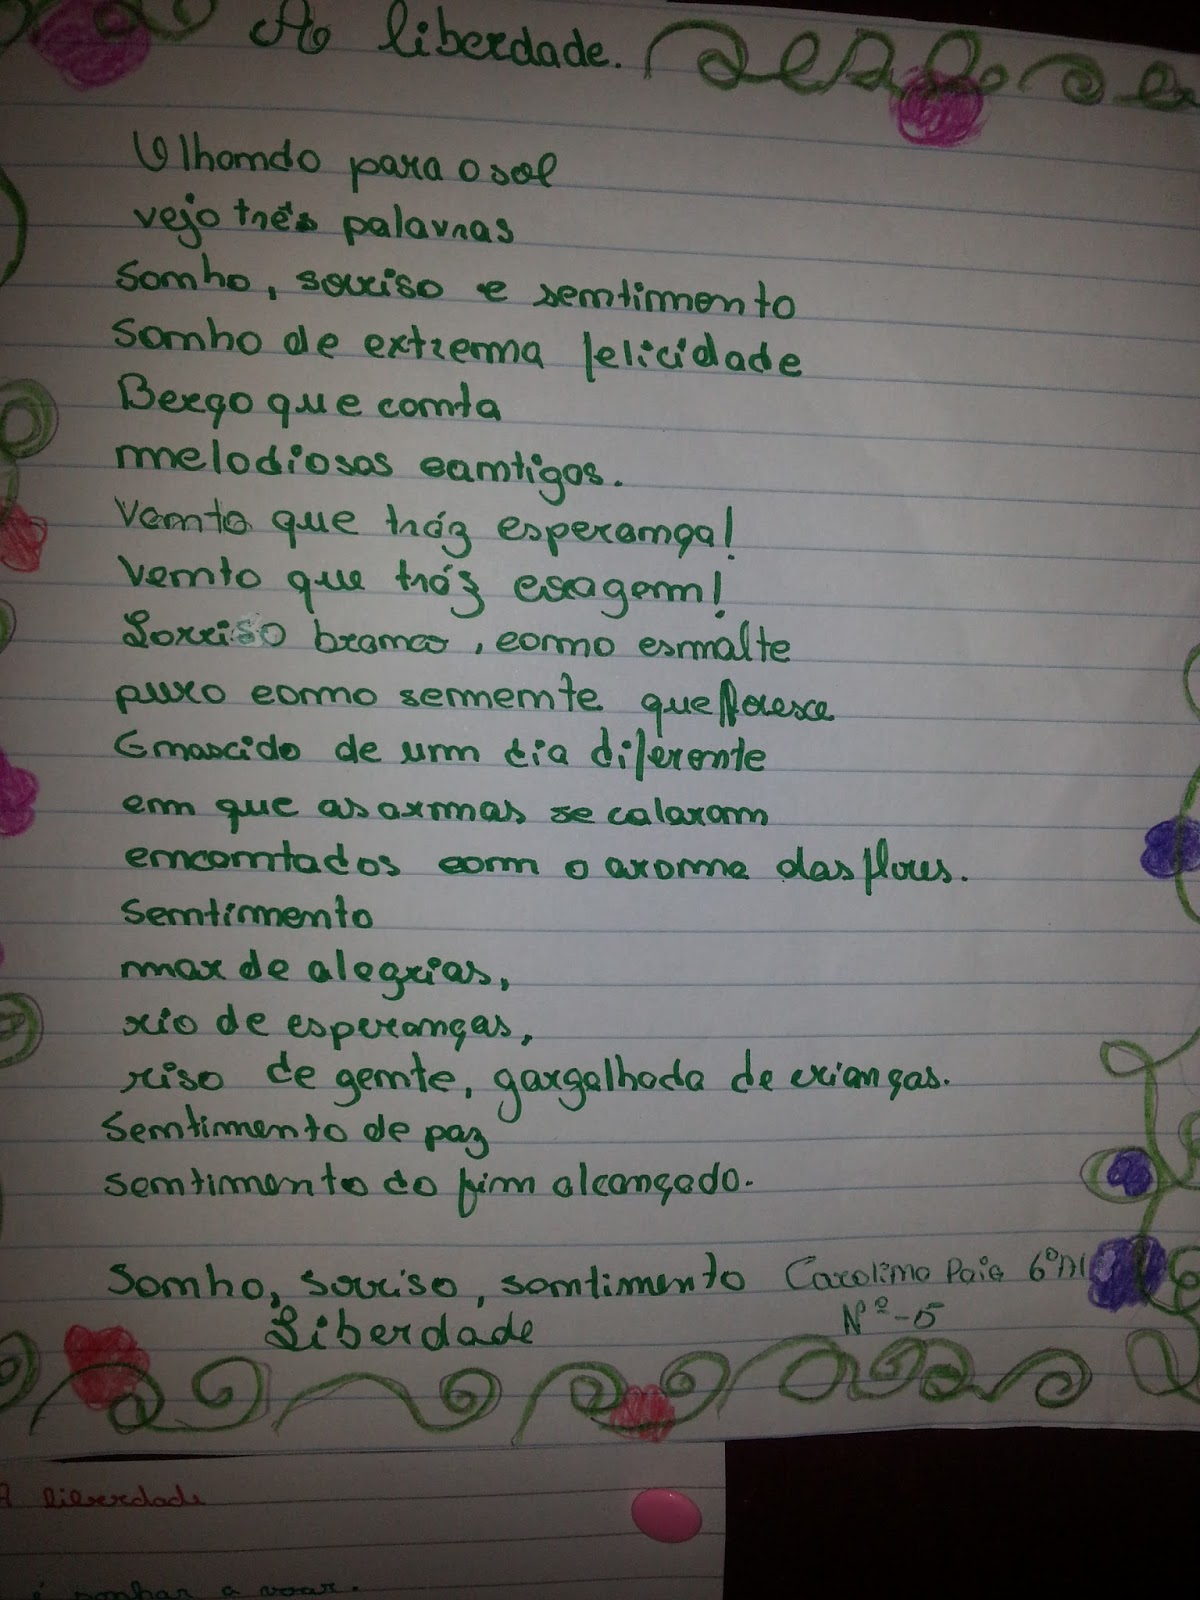 A liberdade.
Olhando para o sol
vejo três palavras
Sonho, sorriso e sentimento
Sonho de extrema felicidade
Berço que conta
melodiosos cantigos.
Vento que tráz esperança!
Vento que tráz coragem!
Sorriso branco, como esmalte
puro como semente que floresce
E nascido de um dia diferente
em que as armas se calaram
encantados com o aroma das flores.
Sentimento
mar de alegrias,
rio de esperanças,
riso de gente, gargalhada de crianças.
Sentimento de paz
sentimento do fim alcançado.
Sonho, sorriso, sentimento Carolina Paia 6º
Liberdade Nº-5
A liberdade
é sonhar a voar.